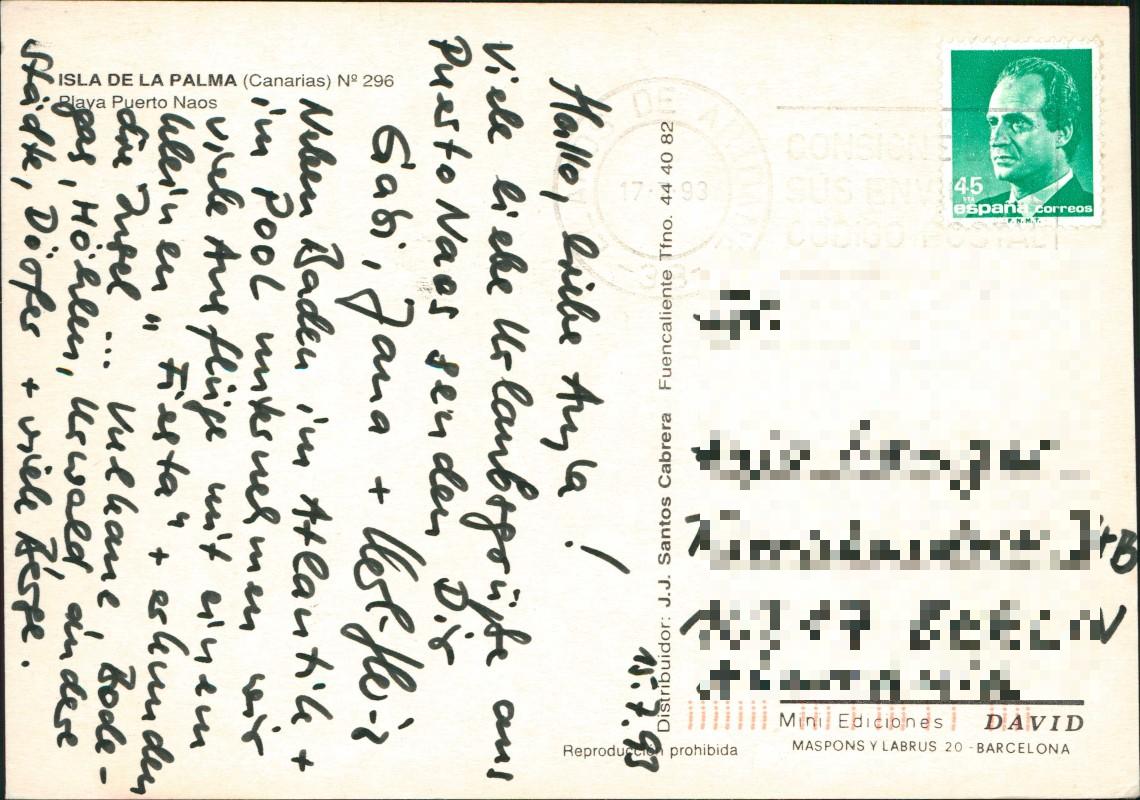 ISLA DE LA PALMA (Canarias) Nº 296
Playa Puerto Naos
Hallo, liebe Angla!
Viele liebe Urlaubsgrüße aus
Puerto Naos senden Dir
Gabi, Jana +
Neben Baden im Atlantik +
im Pool unternehmen wir
viele Ausflüge mit einem
kleinen "Fiesta" + erkunden
die Insel ... Vulkane, Bode-
gas, Höhlen, Urwald andere
Städte, Dörfer + viele Berge.
15.7.93
Distribuidor: J.J. Santos Cabrera Fuencaliente Tfno. 44 40 82
Reproducción prohibida
17. 93
CONSIGNE
SUS ENV
CODIGO POSTAL
45
PTA
españa correos
F.N.M.T.
Mini Ediciones DAVID
MASPONS Y LABRUS 20 - BARCELONA